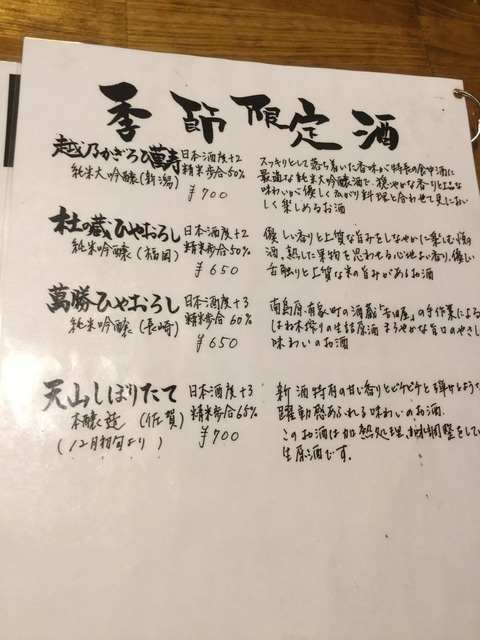 季節限定酒
越乃かぎろひ萬寿
純米大吟醸(新潟)
日本酒度+2
精米歩合50%
¥700
スッキリとして落ち着いた香味が特長の食中酒に
最適な純米大吟醸酒で、穏やかな香りと上品な
味わいが優しく広がり料理と合わせて見におい
しく楽しめるお酒
杜の蔵ひやおろし
純米吟醸(福岡)
日本酒度+2
精米歩合50%
¥650
優しい香りと上質な旨みをしなやかに楽しむ
酒。熟した果物を思わせる心地よい香り。優しい
舌触りと上質な米の旨みがあるお酒
萬勝ひやおろし
純米吟醸(長崎)
日本酒度+3
精米歩合60%
¥650
南島原、有家町の酒蔵「吉田屋」の手作業による
はね木搾りの生詰原酒 まろやかな旨口のやさし
味わいのお酒
天山しぼりたて
本醸造(佐賀)
(12月初旬より)
日本酒度+3
精米歩合65%
¥700
新酒特有の甘い香りとピチピチと弾けるよう
躍動感あふれる味わいのお酒。
このお酒は加熱処理、加水調整をしてい
生原酒です。